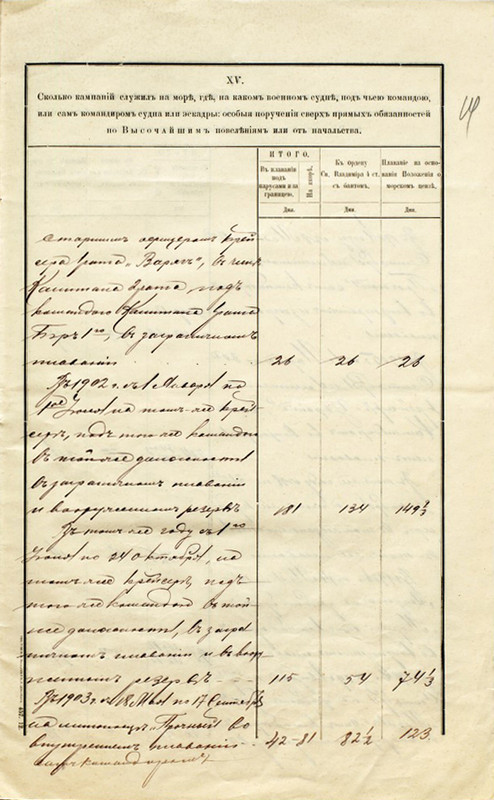 XV.
Сколько кампаній служилъ на морѣ, гдѣ, на какомъ военномъ суднѣ, подъ чьею командою,
или самъ командиромъ судна или эскадры: особыя порученія сверхъ прямыхъ обязанностей
по Высочайшимъ повелѣніямъ или отъ начальства.
ИТОГО.
Въ плаваніи подъ парусами или заграницею.
На якорѣ.
Къ ордену Св. Владиміра 4 ст. съ бантомъ.
Плаваніе на основаніи Положенія о морскомъ цензѣ.
Дни.
Дни.
Дни.
Старшимъ офицеромъ Крей-
сера 1 ранга „Варягъ", въ чинѣ
Капитана 2 ранга, подъ
командою Капитана 1 ранга
Бэръ 1го, въ заграничномъ
плаваніи 26 26 26
Въ 1902 г. съ 1 Января по
1ое Іюня на томъ-же крей-
серѣ, подъ тою же командою
въ той же должности
въ заграничномъ плаваніи
и вооруженномъ резервѣ 181 134 149⅔
Въ томъ же году съ 1го
Іюня по 24 октября, на
томъ же крейсерѣ, подъ
тою же командою въ той-
же должности, въ загра-
ничномъ плаваніи и въ воору-
женномъ резервѣ 115 54 74⅓
Въ 1903 г. съ 18 Мая по 17 Сентября
на миноносцѣ „Прочный" во
внутреннемъ плаваніи 42 81 82½ 123
командиромъ